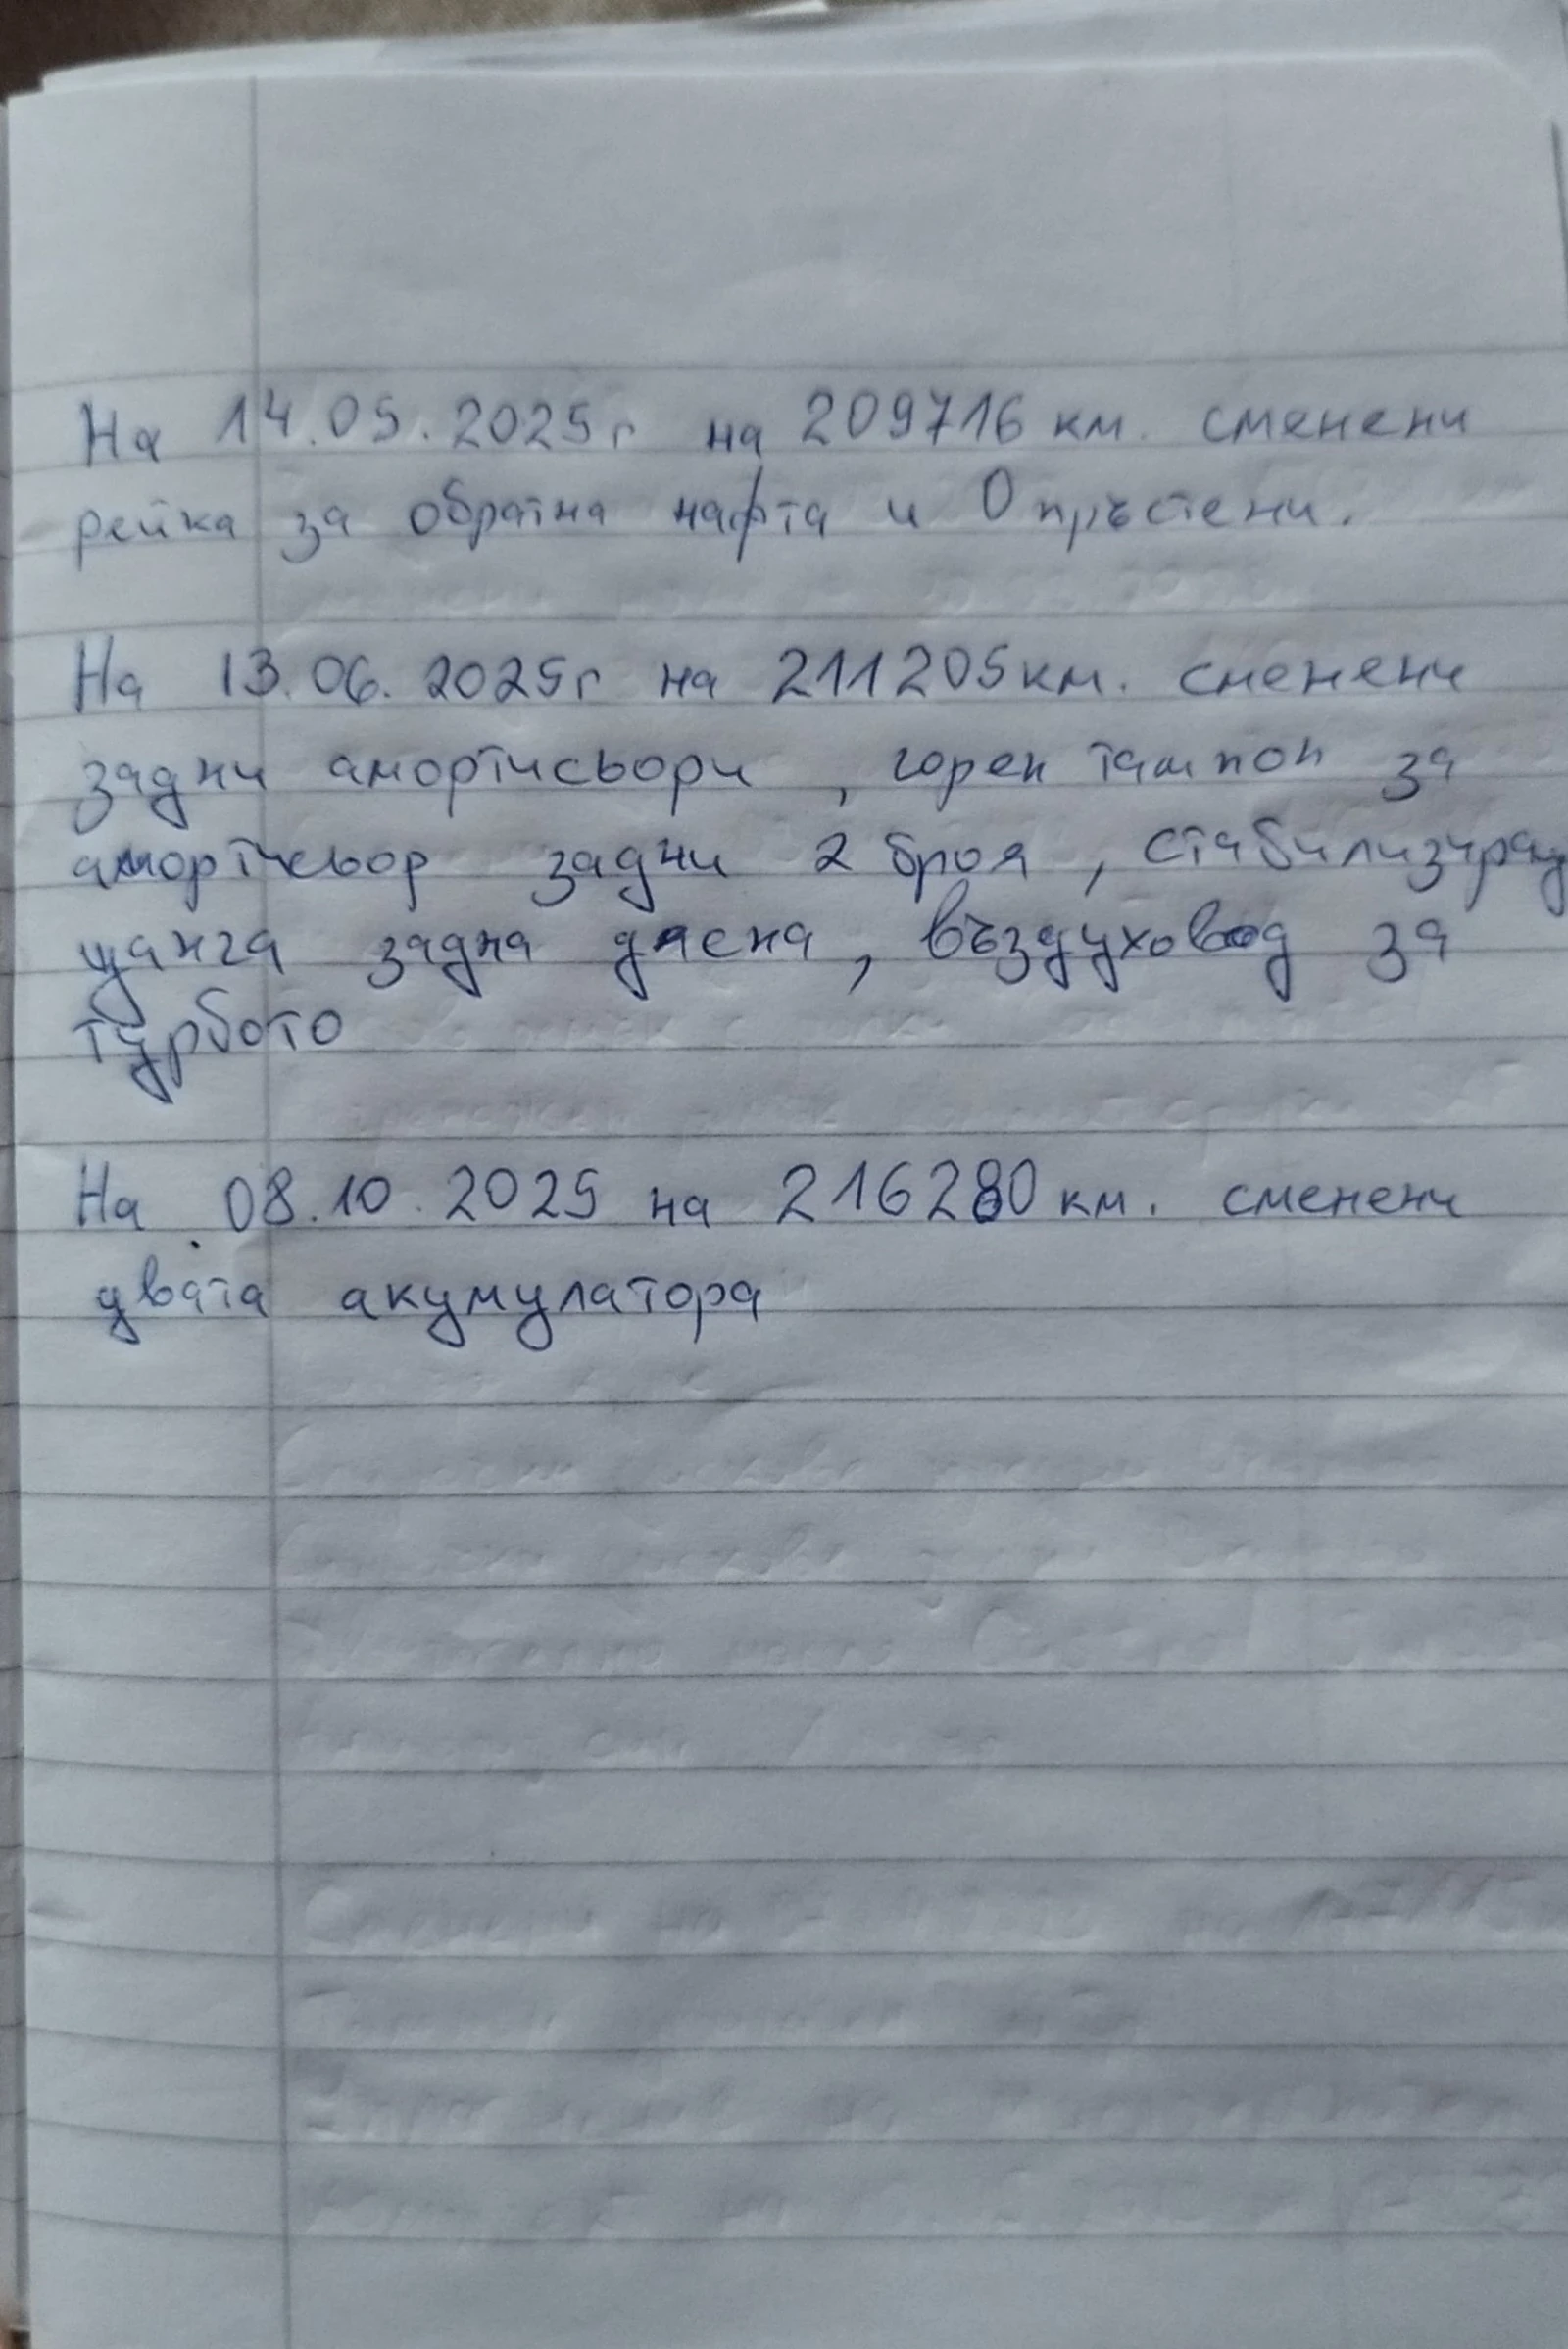 На 14.05.2025г на 209716 км. сменени
рейка за обратна нафта и О пръстени.
На 13.06.2025г на 211205 км. сменени
задни амортисьори , горен тампон за
амортисьор задни 2 броя , стабилизиращ
щанга задна дясна , въздуховод за
турбото
На 08.10.2025 на 216280 км. сменени
двата акумулатора